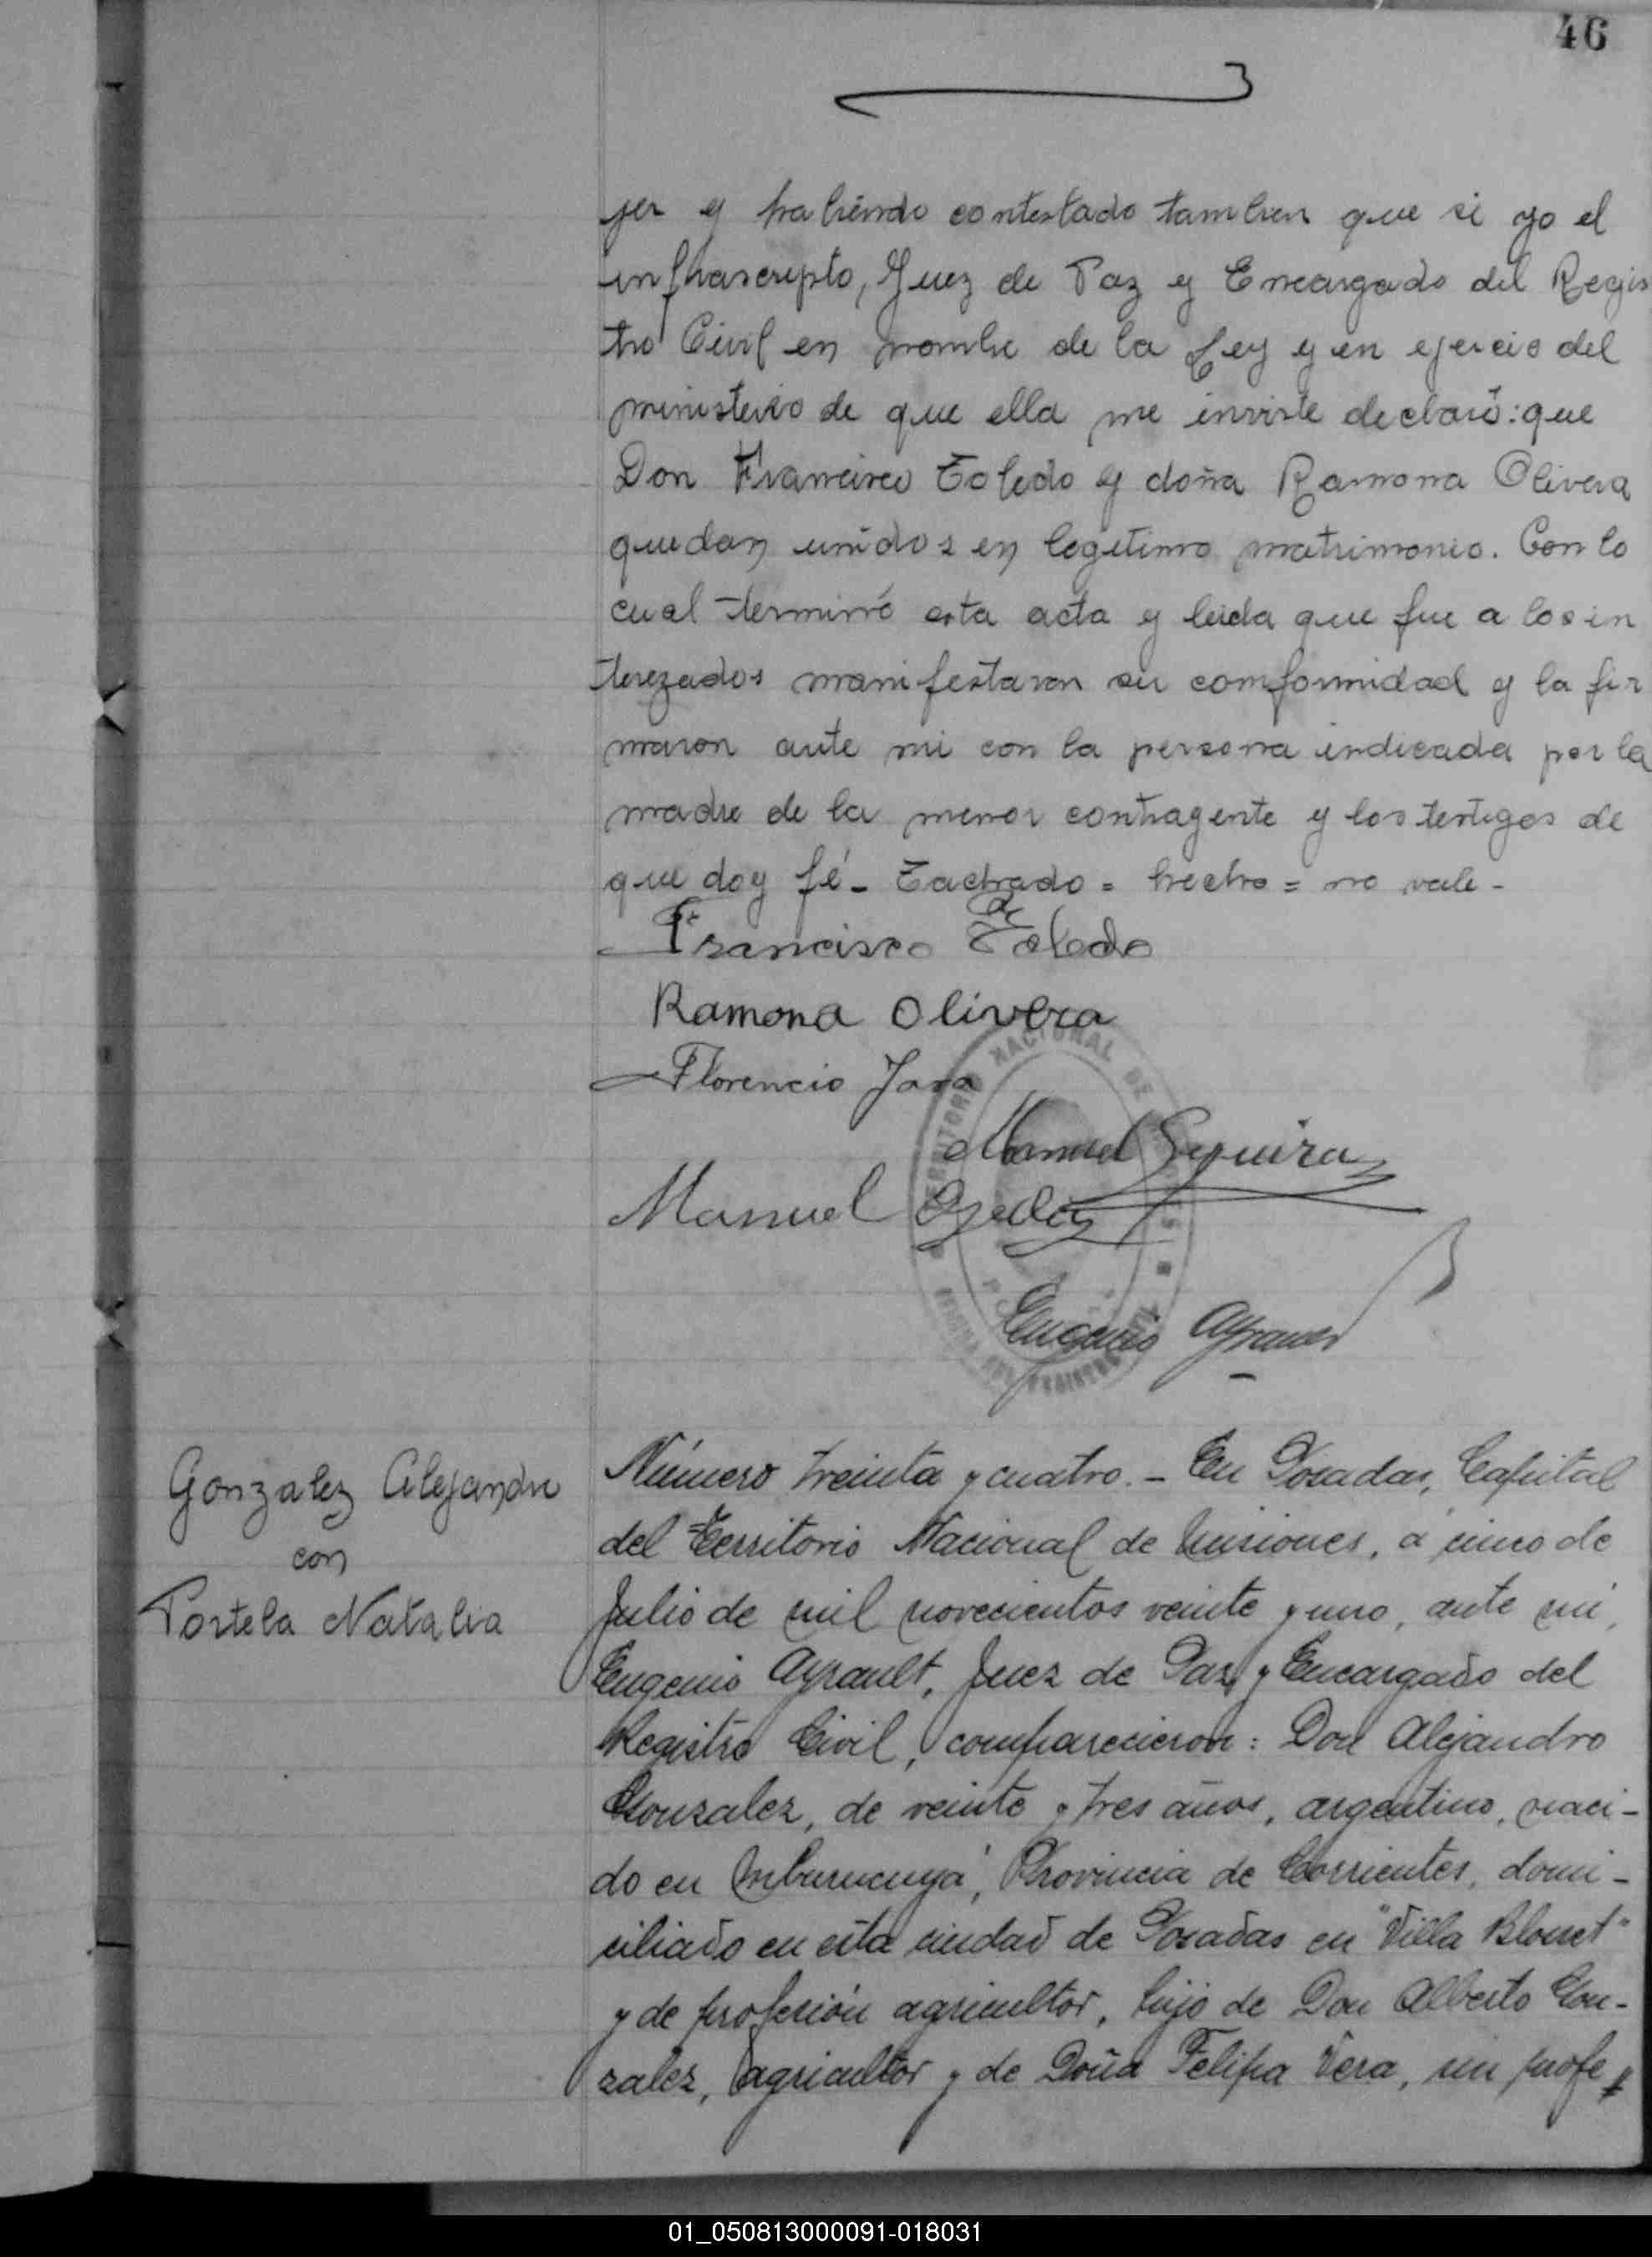 46
jer y habiendo contestado tambien que si yo el
infrascripto, Juez de Paz y Encargado del Regis
tro Civil en nombre de la Ley y en ejercio del
ministerio de que ella me inviste declaró: que
Don Francisco Toledo y doña Ramona Olivera
quedan unidos en legitimo matrimonio. Con lo
cual terminó esta acta y leida que fue a los in
terezados manifestaron su comformidad y la fir
maron ante mi con la persona indicada por la
madre de la menor contragente y los testigos de
que doy fé - Tachado = hecho = no vale -
Francisco Toledo
Ramona Olivera
Florencio Jara
Manuel Sequeira
Manuel Ojeda
Eugenio Ayrault
TERRITORIO NACIONAL DE
Gonzalez Alejandro
con
Portela Natalia
Número treinta y cuatro. - En Posadas, Capital
del Territorio Nacional de Misiones, á cinco de
Julio de mil novecientos veinte y uno, ante mi,
Eugenio Ayrault, Juez de Paz y Encargado del
Registro Civil, comparecieron: Don Alejandro
Gonzalez, de veinte y tres años, argentino, naci-
do en Mburucuyá, Provincia de Corrientes, domi-
ciliado en esta ciudad de Posadas en "Villa Blosset"
y de profesión agricultor, hijo de Don Alberto Gon-
zalez, agricultor y de Doña Felipa Vera, sin profe
01_050813000091-018031